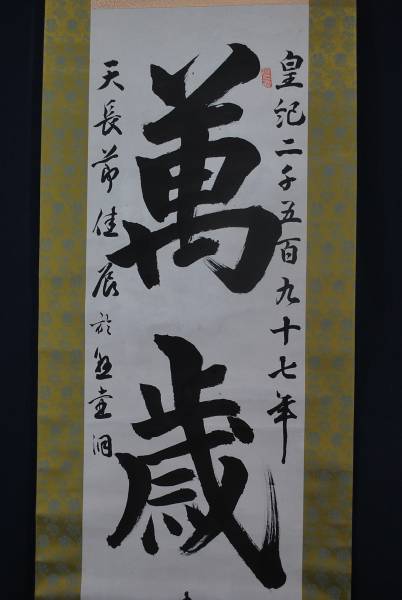 皇紀二千五百九十七年
萬歳
天長節佳辰於